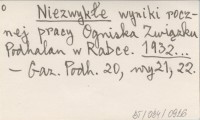 Niezwykłe wyniki rocz-
nej pracy Ogniska Związku
Podhalan w Rabce. 1932...
— Gaz. Podh. 20, nry 21, 22.